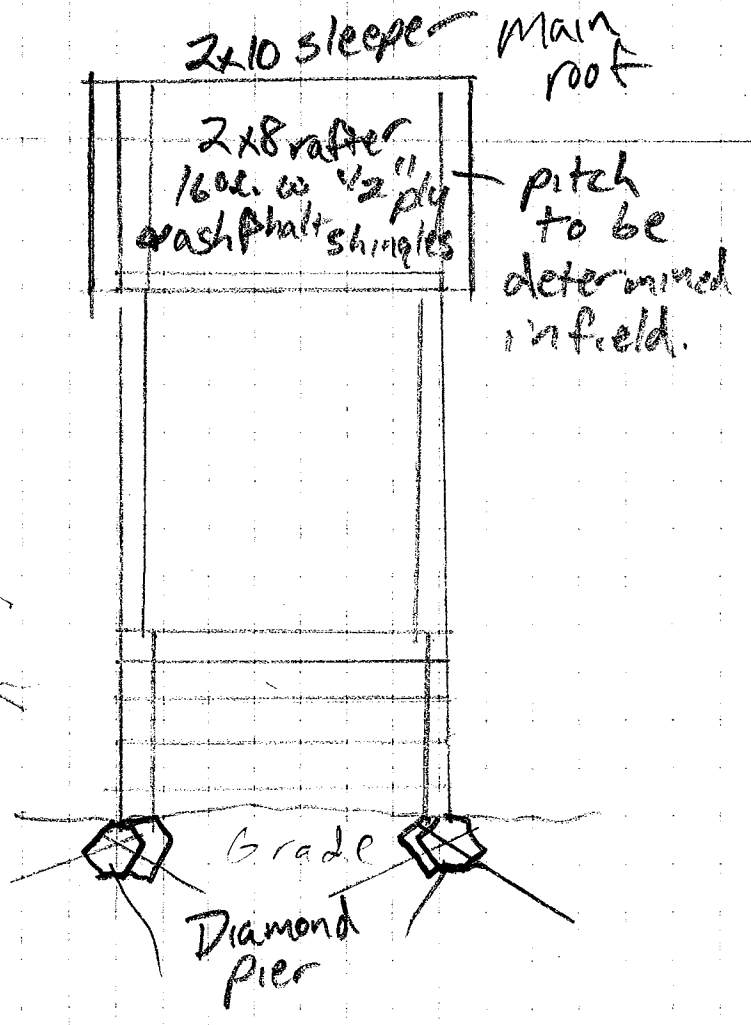 2x10 sleeper
Main
roof
2x8 rafter
16 o.c. w 1/2" ply
ashphalt shingles
pitch
to be
determined
in field.
Grade
Diamond
pier